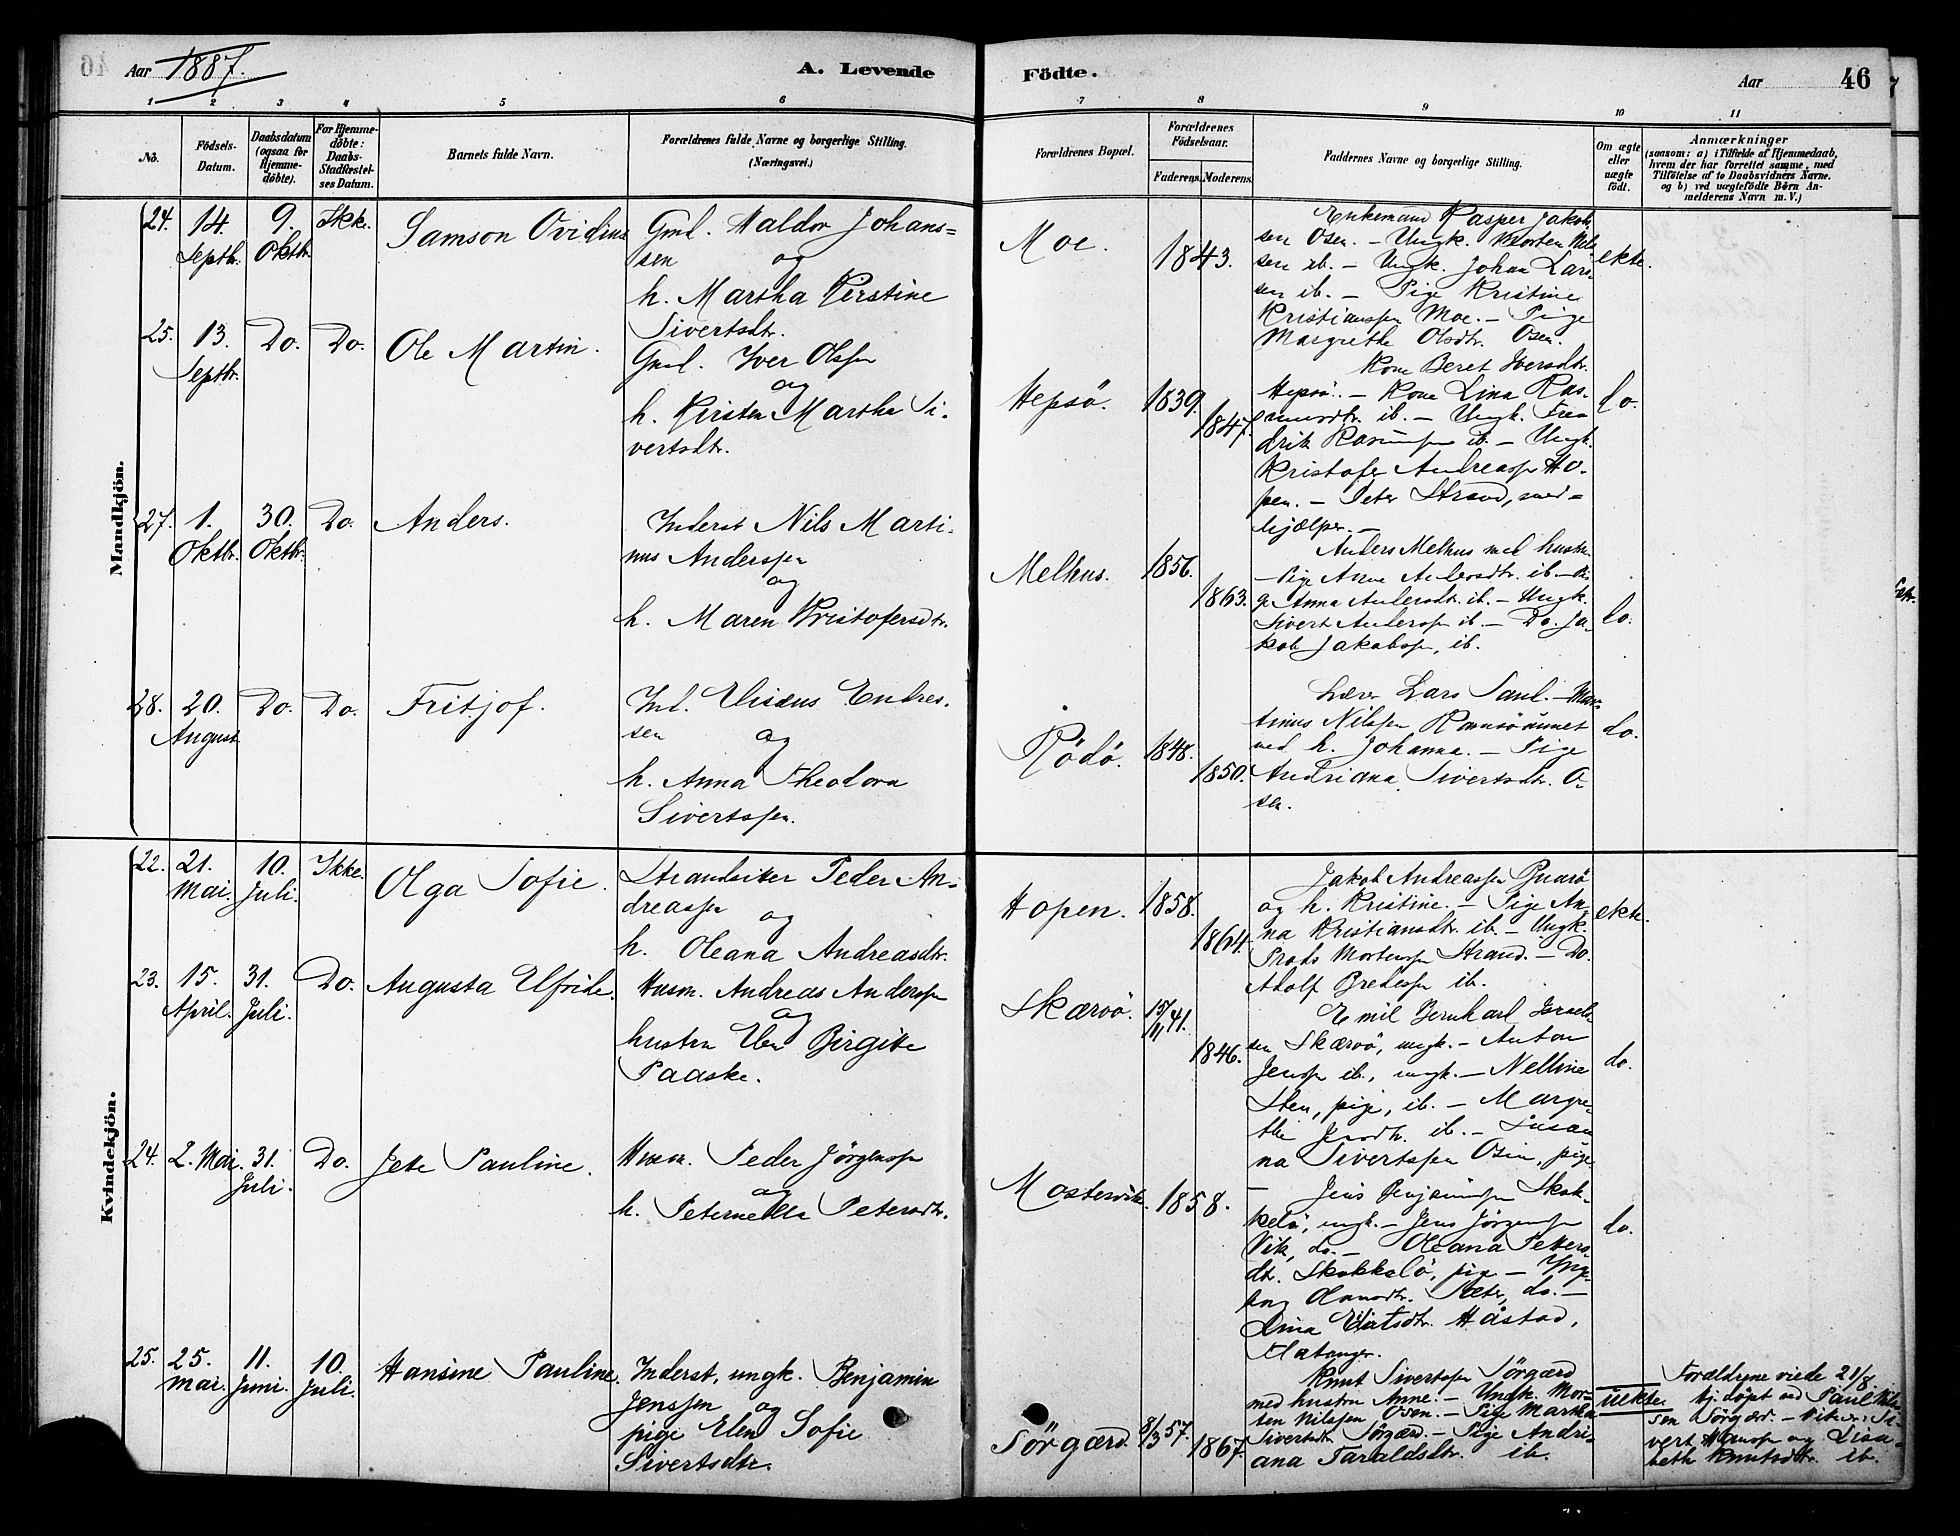 Aar 1887.
A. Levende Födte.
Aar
46
1 2 3 4 5 6 7 8 9 10 11
No.
Födsels-Datum.
Daabsdatum (ogsaa for Hjemme-döbte).
For Hjemme-döbte: Daabs-Stadfæstel-ses Datum.
Barnets fulde Navn.
Forældrenes fulde Navne og borgerlige Stilling. (Næringsvei.)
Forældrenes Bopæl.
Forældrenes Födselsaar.
Faderens. Moderens.
Faddernes Navne og borgerlige Stilling.
Om ægte eller uægte födt.
Anmærkninger
(saasom: a) i Tilfælde af Hjemmedaab, hvem der har forrettet samme, med Tilföielse af to Daabsvidners Navne, og b) ved uægtefödte Börn An-melderens Navn m. V.)
Mandkjön.
24. 14. Septbr. 9. Oktbr. Ikke. Samson Ovidius
Gml. Haldor Johans=
sen og
h. Martha Kirstine
Sivertsdtr.
Moe. 1843.
Enkemand Kasper Jakob
sen Osen. - Ungk. Morten Nil
sen ib. - Ungk. Johan Lars
sen ib. - Pige Kristine
Kristianssen Moe. - Pige
Margrethe Olsdtr. Osen.
ekte.
25. 13. Septbr. Do. Do. Ole Martin.
Gml. Iver Olssen
og
h. Kirsten Martha Si-
vertsdtr.
Hepsö. 1839. 1847.
Kone Beret Iversdtr.
Hepsö. - Kone Lina Ras-
musdtr. ib. - Ungk. Fre
drik Rasmussen ib. - Ungk.
Kristofer Andreassen Ho-
pen. - Peter Strand, smed=
hjælper. -
do.
27. 1. Oktbr. 30. Oktbr. Do. Anders.
Inderst Nils Marti-
nus Anderssen
og
h. Maren Kristofersdtr.
Melhus. 1856. 1863.
Anders Melhus med hustru
- Pige Anne Andersdtr. ib. - Pi-
ge Anna Andersdtr. ib. - Ungk.
Sivert Anderssen ib. - Do. Ja-
kob Jakobssen, ib.
do.
28. 20. August Do. Do. Fritjof.
Ind. Elisæus Endres-
sen og
h. Anna Theodora
Sivertssen.
Rödö. 1848. 1850.
Lærer Lars Saul. - Mar-
tinus Nilssen Ramsöaunet
med h. Johanna. - Pige
Andriana Sivertsdtr. O-
sen.
do.
Kvindekjön.
22. 21. Mai. 10. Juli. Ikke. Olga Sofie.
Strandsitter Peder An-
dreassen og
h. Oleana Andreasdtr.
Hopen. 1858. 1864.
Jakob Andreassen
og h. Kristine. - Pige An-
na Kristiansdtr. ib. - Ungk.
Morten Strand. - Do.
Adolf Bredesen ib.
ekte.
23. 15. April. 31. Juli. Do. Augusta Elfride.
Husm. Andreas Anderssen
og
hustru Elen Birgitte
Paaske.
Skærvö. 15/11 41. 1846.
Emil Bernhard Israel-
sen Skærvö, ungk. - Anton
Jenssen ib., ungk. - Nelline
Sten, pige, ib. - Margre-
the Jensdtr. ib. - Susan
na Sivertssen Osen, pige
do.
24. 2. Mai. 31. Juli. Do. Jete Pauline.
Husm. Peder Jörgenssen
og
h. Peternella Petersdtr.
Mostervik. 1858.
- Jens Benjaminsen Skok-
kelö, ungk. - Jens Jörgenssen
Vik, do. - Oleana Peters
dtr. Skokkelö, pige - Inge-
borg Sæter, do. -
Lina Håstad,
Flatanger.
do.
25. 25. Mai. 11. Juni. 10. Juli. Hansine Pauline.
Inderst, ungk. Benjamin
Jenssen og
pige Elen Sofie
Sivertsdtr.
Sörgærd. 8/3 57. 1867.
Knut Sivertsen Sörgærd
med hustru Anne. - Ungk. Mor-
ten Nilssen Osen. - Pige Martha
Sivertsdtr. Sörgærd. - Pige Andri-
ana Taraldsdtr. ib.
uekte.
Forældrene viede 21/8.
Hj. döpt ved Paul Nils-
sen Sörgærd. - Vidner: Si-
vert Hanssen og Lisa-
beth Knutsdtr. ib.